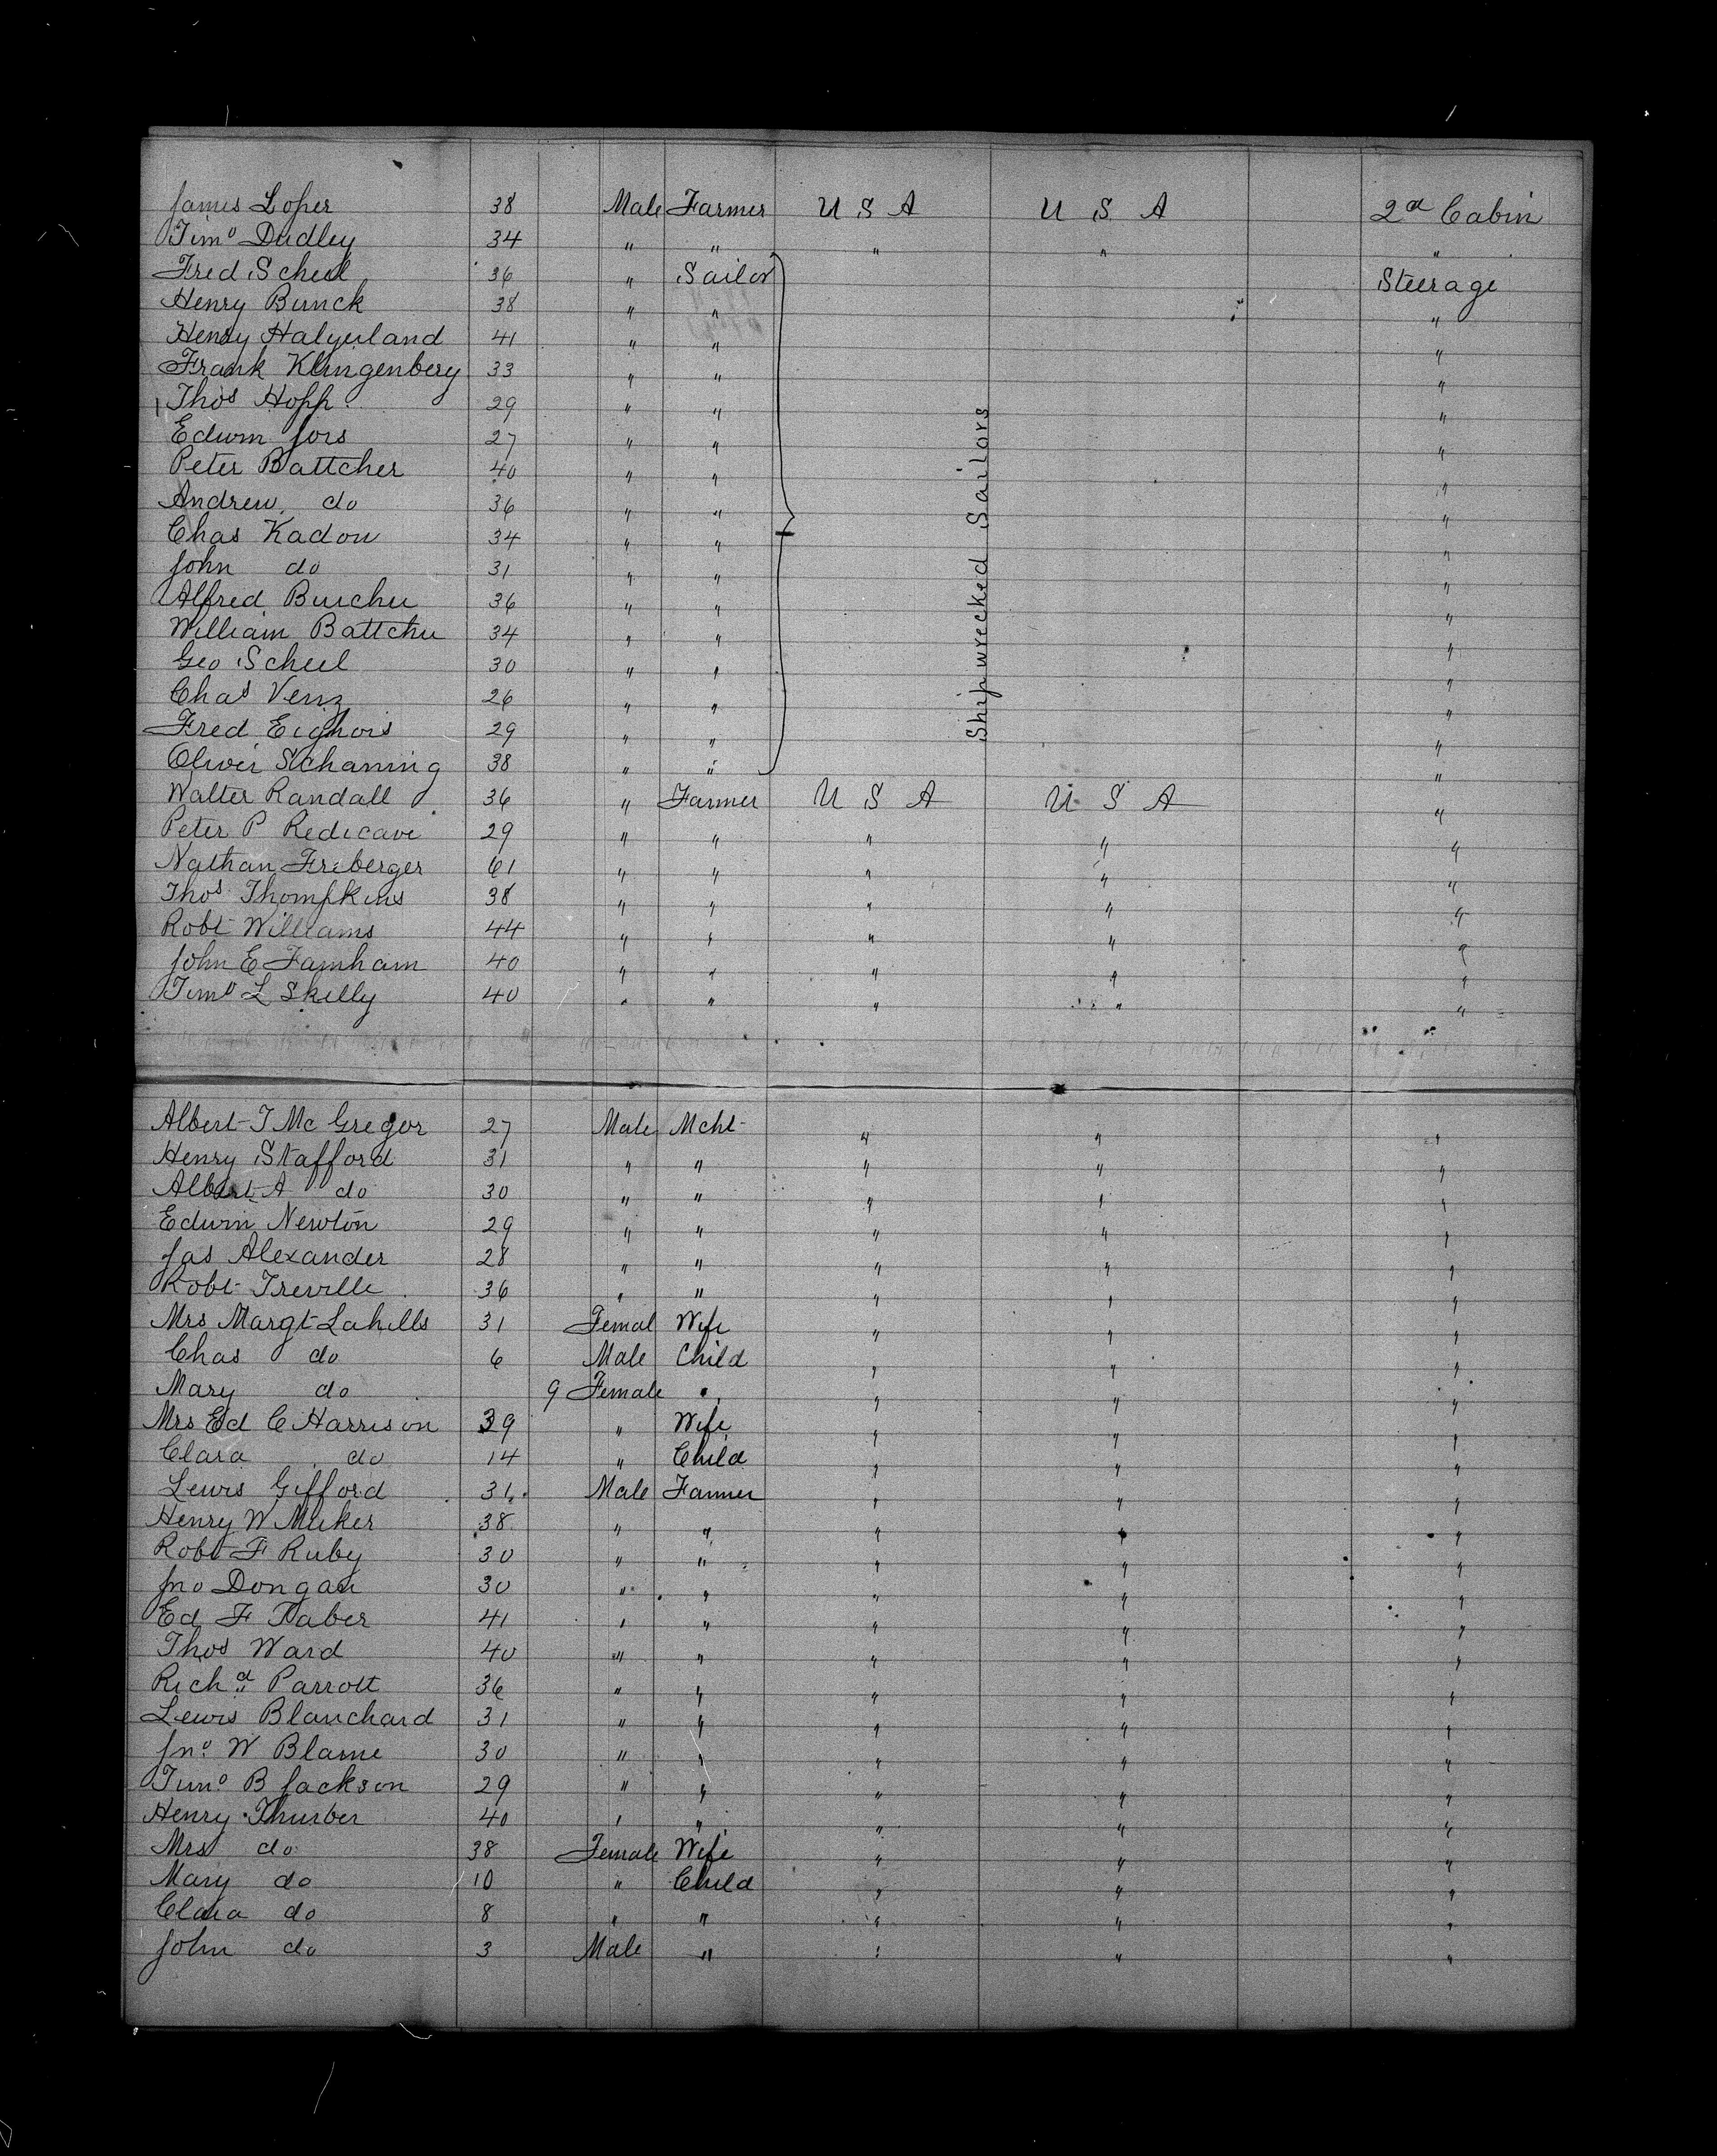 James Loper 38 Male Farmer U S A U S A 2d Cabin
Timo Dudley 34 " " " " "
Fred Scheel 36 " Sailor Steerage
Henry Bunck 38 " " "
Henry Halyerland 41 " " "
Frank Klingenberg 33 " " "
Thos Hopp 29 " " "
Edwin Jors 27 " " "
Peter Battcher 40 " " "
Andrew do 36 " " "
Chas Kadow 34 " " "
John do 31 " " "
Alfred Burcher 36 " " "
William Battcher 34 " " "
Geo Scheel 30 " " "
Chas Venz 26 " " "
Fred Eighors 29 " " "
Oliver Schaning 38 " " "
Shipwrecked Sailors
Walter Randall 36 " Farmer U S A U S A "
Peter P Redicave 29 " " " " "
Nathan Freberger 61 " " " " "
Thos Thompkins 38 " " " " "
Robt Williams 44 " " " " "
John E Farnham 40 " " " " "
Timo L Skelly 40 " " " " "
Albert T Mc Gregor 27 Male Mcht " " "
Henry Stafford 31 " " " " "
Albert A do 30 " " " " "
Edwin Newton 29 " " " " "
Jas Alexander 28 " " " " "
Robt Treville 36 " " " " "
Mrs Margt Lahills 31 Femal Wife " " "
Chas do 6 Male Child " " "
Mary do 9 Female " " " "
Mrs Ed C Harrison 39 " Wife " " "
Clara do 14 " Child " " "
Lewis Gifford 31 Male Farmer " " "
Henry W Meeker 38 " " " " "
Robt F Ruby 30 " " " " "
Jno Dongan 30 " " " " "
Ed F Taber 41 " " " " "
Thos Ward 40 " " " " "
Richd Parrott 36 " " " " "
Lewis Blanchard 31 " " " " "
Jno W Blame 30 " " " " "
Timo B Jackson 29 " " " " "
Henry Thurber 40 " " " " "
Mrs do 38 Female Wife " " "
Mary do 10 " Child " " "
Clara do 8 " " " " "
John do 3 Male " " " "